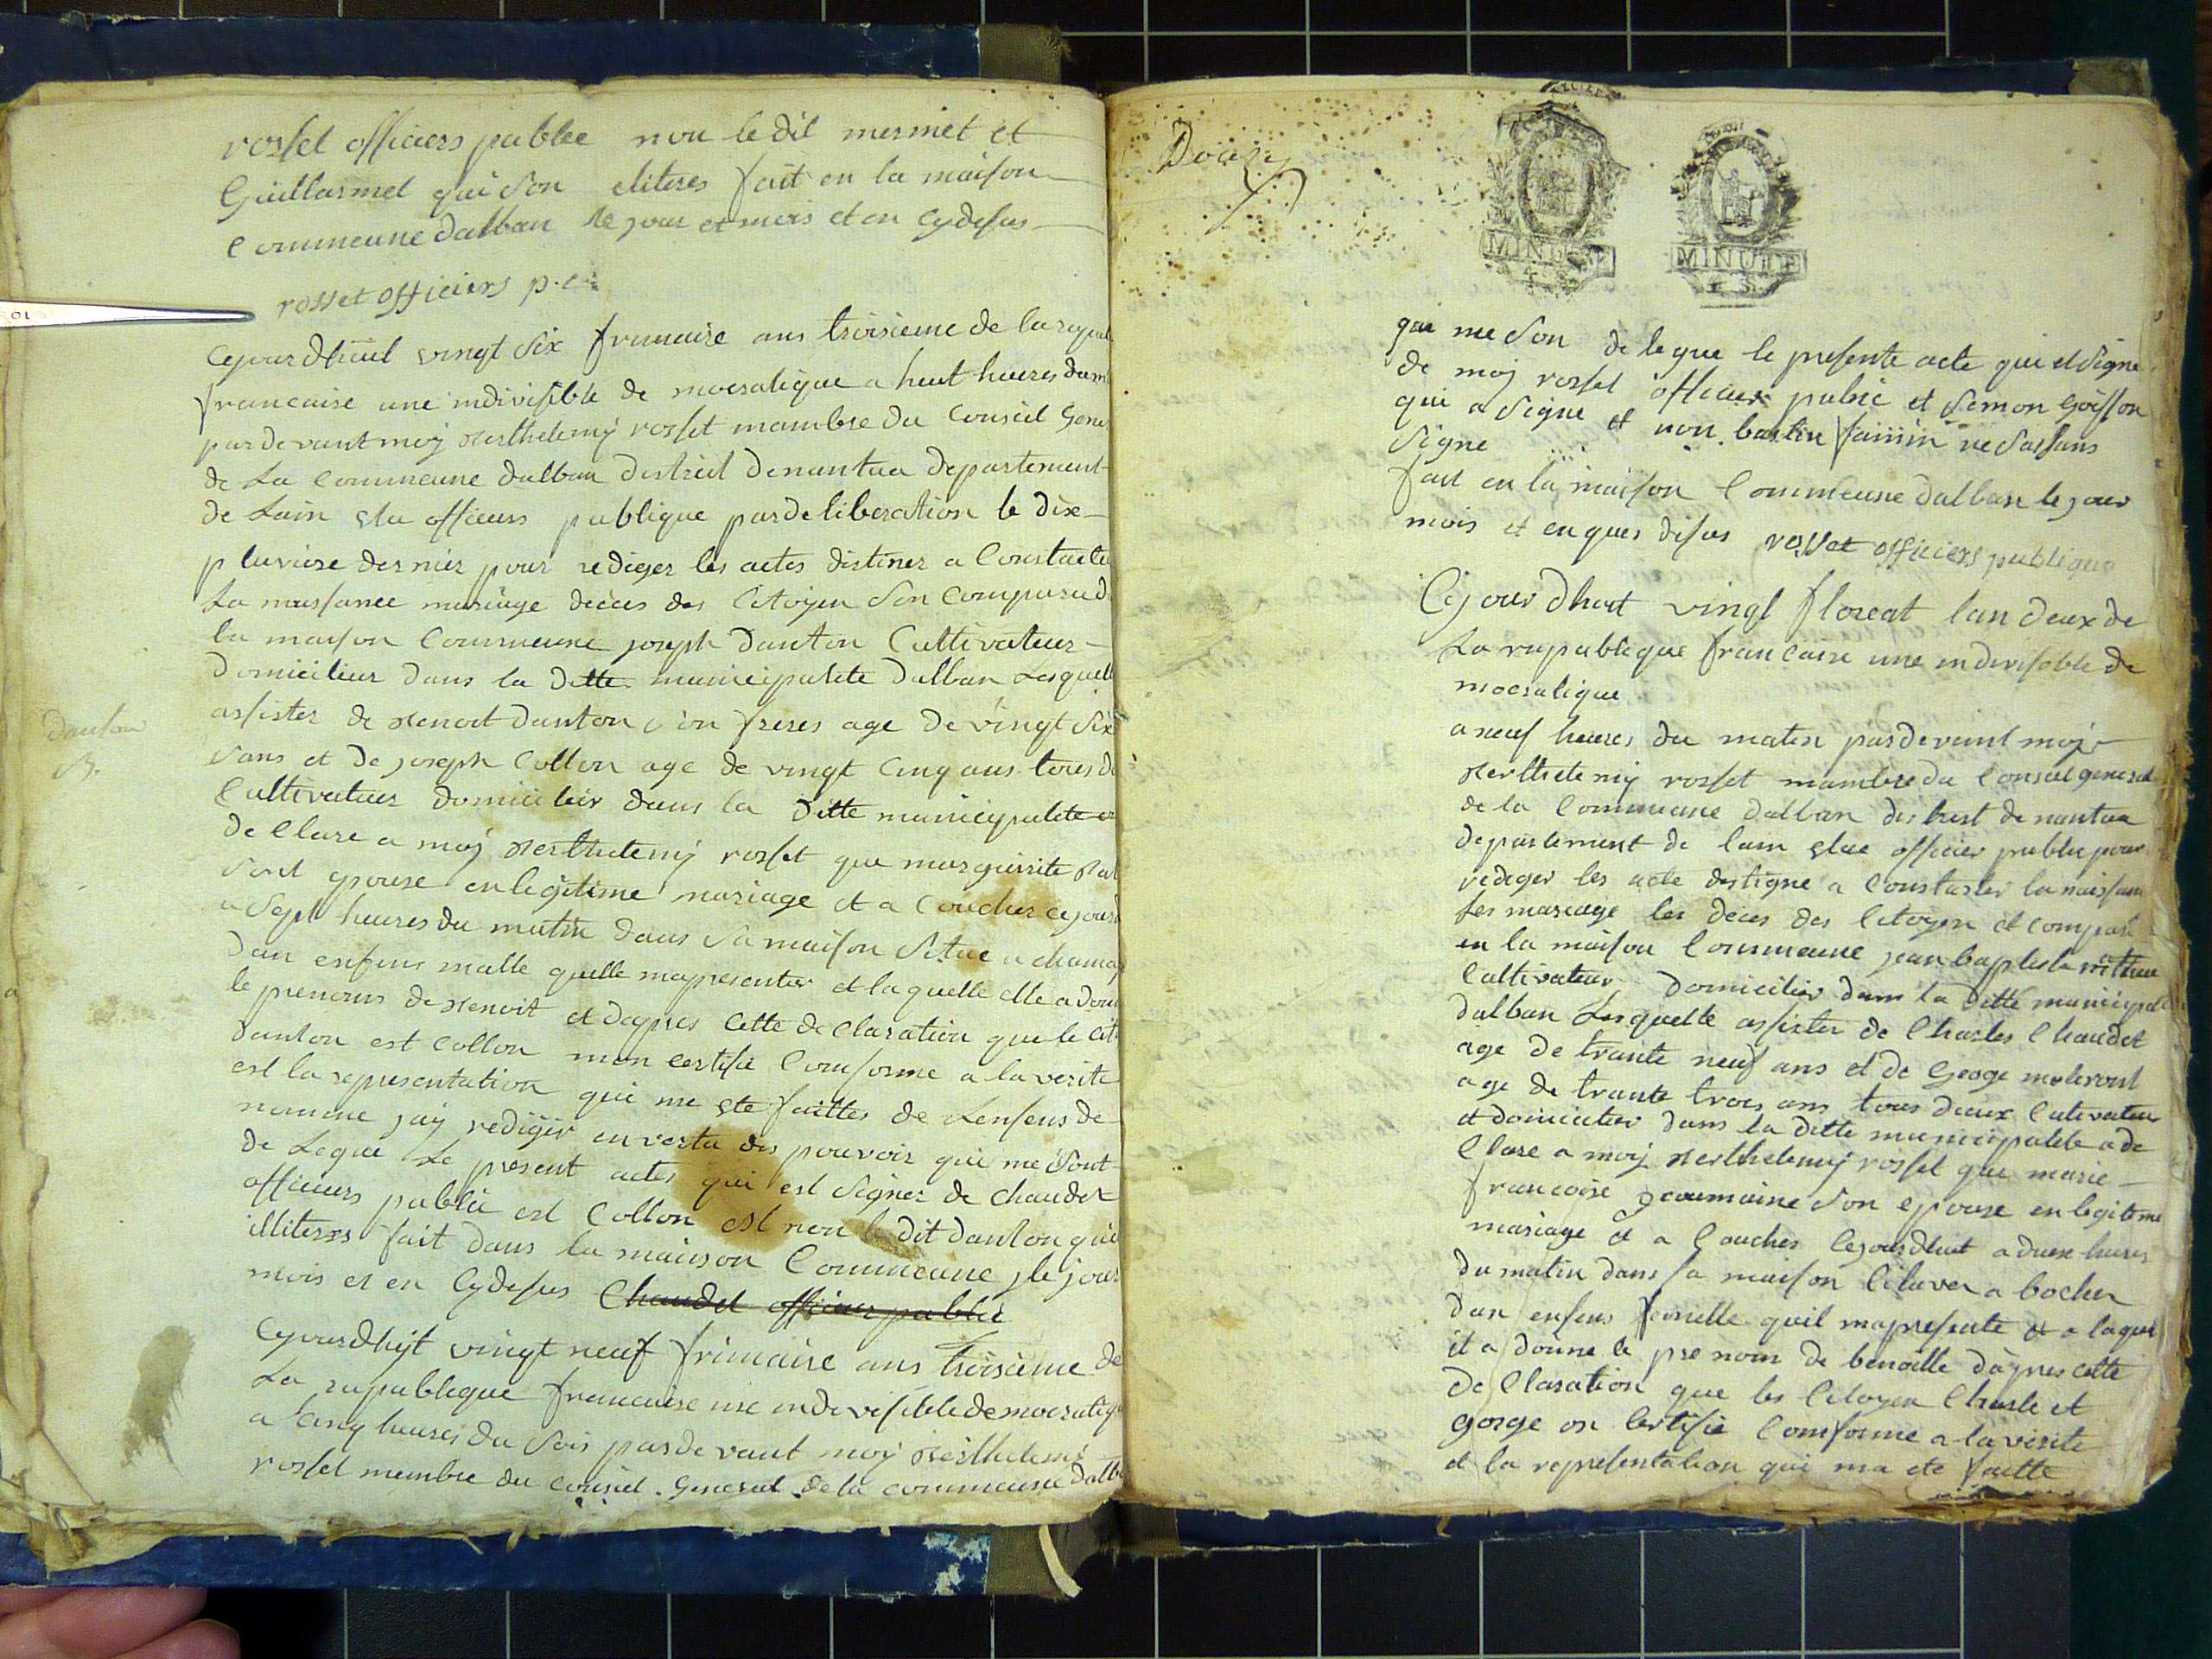 rosset officiers publee non le dit mermet et
Guillarmet qui son eliteres fait en la maison
Commeune dalban le jour et mois et en cydesus
rosset officiers p.c
Cejourdhuit vingt six frimaire ans troisieme de la
francaise une indivisible de mocratique a heut heures du
pardevant moy Berthelemy rosset mambre du Conseil Gene
de La Commeune dalban destrict denantua departement
de Lain elu officiers publique pardeliberation le dix
pluviose dernier pour rediger les actes distines a Constacter
La naissance mariage deces des Citoyen Son Comparu d
la maison Commeune joseph Danton Cultivateur
Domicilier dans la Ditte municipalite Dalban Lesquelle
assister de Benoit Danton son freres age De vingt Six
dans
B.
Sans et De joseph Collon age de vingt Cinq ans tous d
Cultivateur domicilier dans la Ditte municipalite
de Clare a moy Berthelemy rosset que marguerite
Sont epouse en legitime mariage et a Coucher cejourd
a Sept heures du matin dans Sa maison Setue a
Dun enfens malle quelle mapresenter et laquelle elle a don
le prenoms de Benoit et dapres Cette de Claration que le cit
Danton est Collon mon certifie Comforme a la verite
est la representation qui me ete faittes de Lenfens de
nomme jay rediger en vertu des pouvoir qui me Sont
de Legue Le present actes qui est Signer de Chaudet
officiers public est Collon est non le dit Danton qui
illiteres fait dans la maison Commeune le jour
mois et en Cydesus Chaudet officier public
Cejourdhyt vingt neuf frimaire ans troisieme de
La rapublique francaise une indevisible democratiq
a Cinq heures du Soir pardevant moy Berthelemi
rosset membre du Conseil General de la commeune dalb
Douze
MINUTE
4 S.
MINUTE
4 S.
qui me Son delegue le presente acte qui est Signe
de moy rosset officier public et Simon Goisson
qui a Signe et non bastin ne Sachans
Signe
fait en la maison Commeune Dalban le jour
mois et en ques disus rosset officiers publique
Cejourdhuit vingt floreat lan Deux de
La rapublique francaise une indevisible de
mocratique
a neuf heures du matin pardevant moy
Berthelemy rosset mambre du Conseil general
de la Commeune Dalban distrest de nantua
departement de lain elue officier public pour
rediger les acte destigne a Constater la naissan
les mareage les deces des Citoyen et compar
en la maison Commeune jean baptiste
Cultivateur Domicilier dans la Ditte municipal
dalban Lesquelle assister de Charles Chaudet
age de trante neuf ans et de Geoge
age de trante trois ans tous deux Cultivateur
et domicilier dans la Ditte municipalite a de
Clare a moy Berthelemy rosset que marie
francoise son epouse en legitime
mariage et a Coucher Cejourdhuit a deux heures
du matin dans sa maison a bocher
Dun enfens femelle quil mapresente et a laquel
il a donne le pre nom de benoitte dapres cette
de Claration que les Citoyen Charle et
gorge on Certifie Comforme a la verite
et la representation qui ma ete faitte